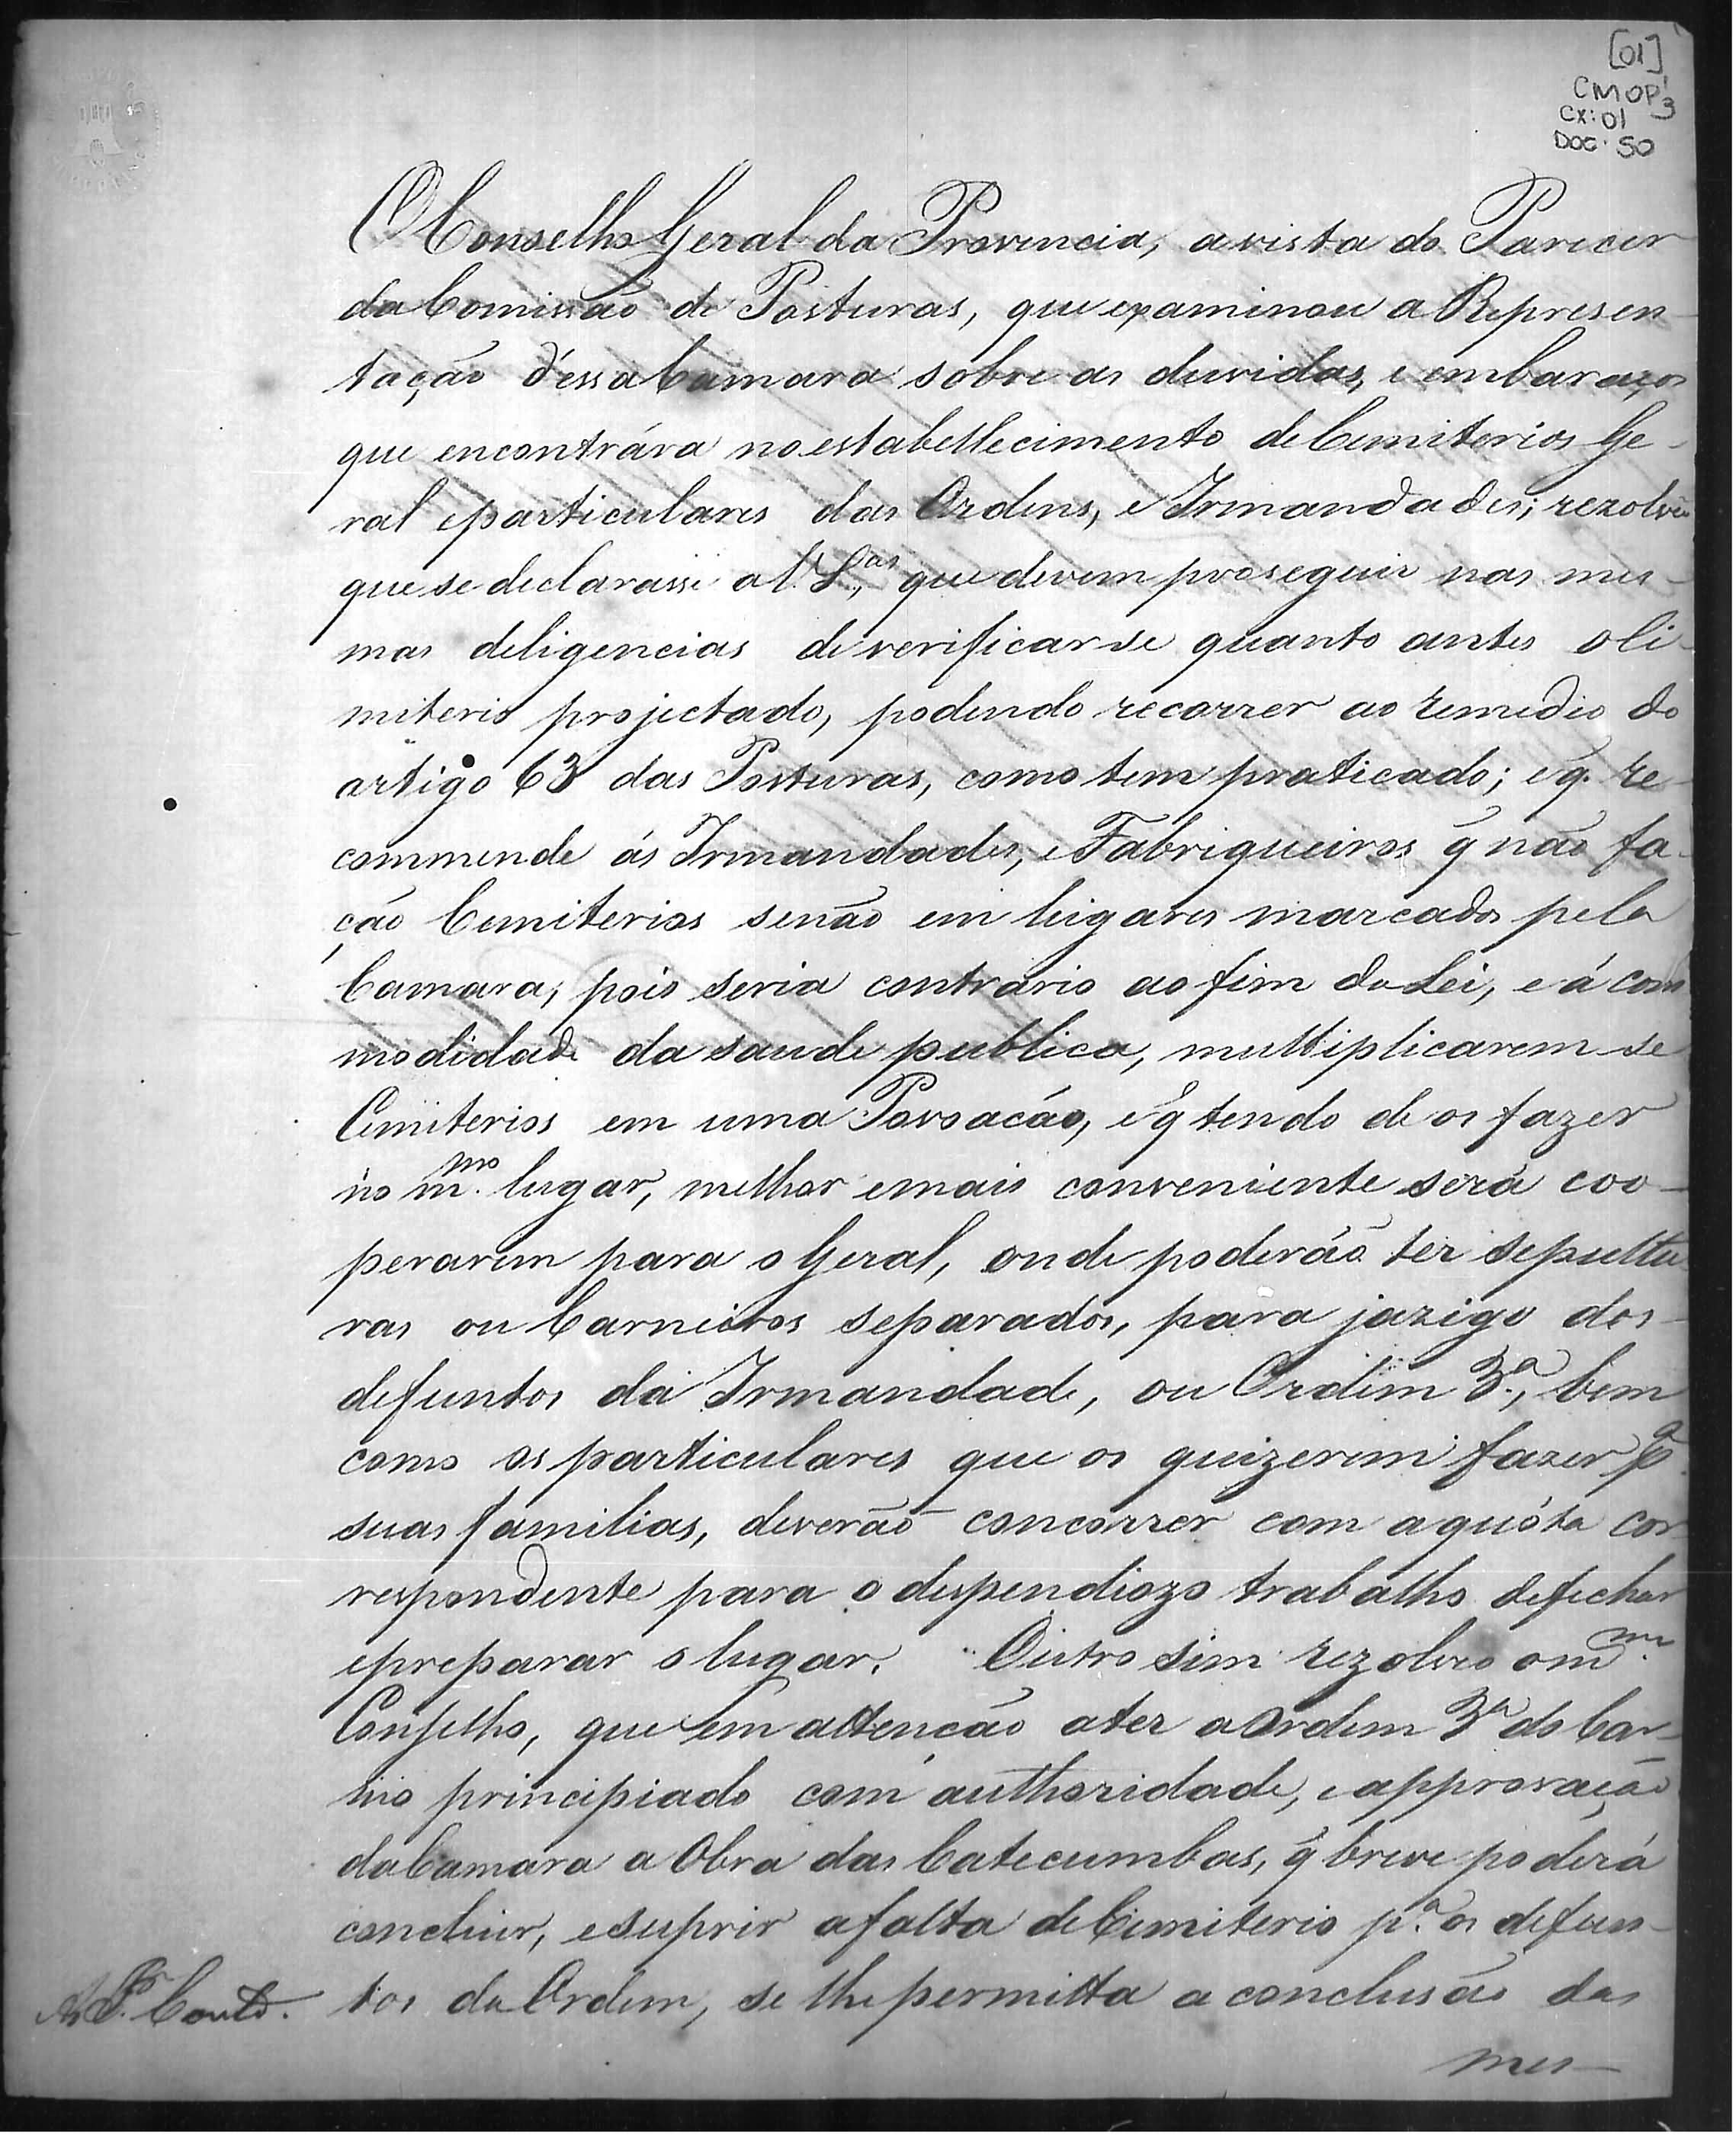 [01]
CMOP 3
CX: 01
DOC. 50
O Conselho Geral da Provincia, a vista do Parecer
da Comissão de Posturas, que examinou a Represen-
tação d'essa Camara sobre as duvidas, e embaraços
que encontrára no estabellecimento de Cemiterios Ge-
ral e particulares das Ordens, e Irmandades; rezolvêo
que se declarasse a V. S.as, que devem proseguir nas mes-
mas deligencias de verificar-se quanto antes o Ci-
miterio projectado, podendo recorrer ao remedio do
artigo 63 das Posturas, como tem praticado; e q. re-
commende ás Irmandades, e Fabriqueiros q não fa-
ção Cemiterios senão em lugares marcados pela
Camara; pois seria contrario ao fim da Lei, e á com-
modidade da saude publica, multiplicarem-se
Cimiterios em uma Povoacão, e q tendo de os fazer
no m.mo lugar, melhor e mais conveniente será coo-
perarem para o Geral, onde poderáõ ter sepultu-
ras ou Carneiros separados, para jazigo dos
defuntos da Irmandade, ou Ordem 3.a, bem
como os particulares que os quizerem fazer p.a
suas familias, deverão concorrer com a quóta cor-
respondente para o dispendiozo trabalho de fechar
e preparar o lugar. Outro sim rezolveo o m.mo
Conselho, que em attencão a ter a Ordem 3.a do Car-
mo principiado com authoridade, e approvação
da Camara a Obra das Catecumbas, q breve poderá
concluir, e suprir a falta de Cimiterio p.a os defun-
tos da Ordem, se lhe permitta a conclusão das
mes-